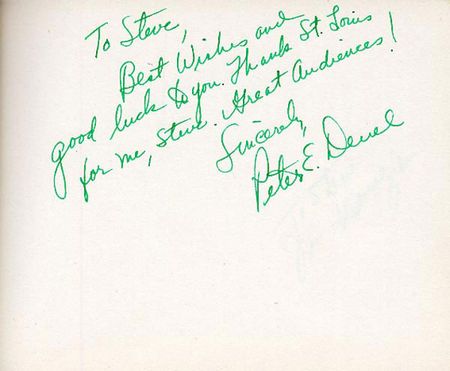 To Steve,
Best Wishes and
good luck to you. Thank St. Louis
for me, Steve. Great Audiences!
Sincerely,
Peter E. Deuel